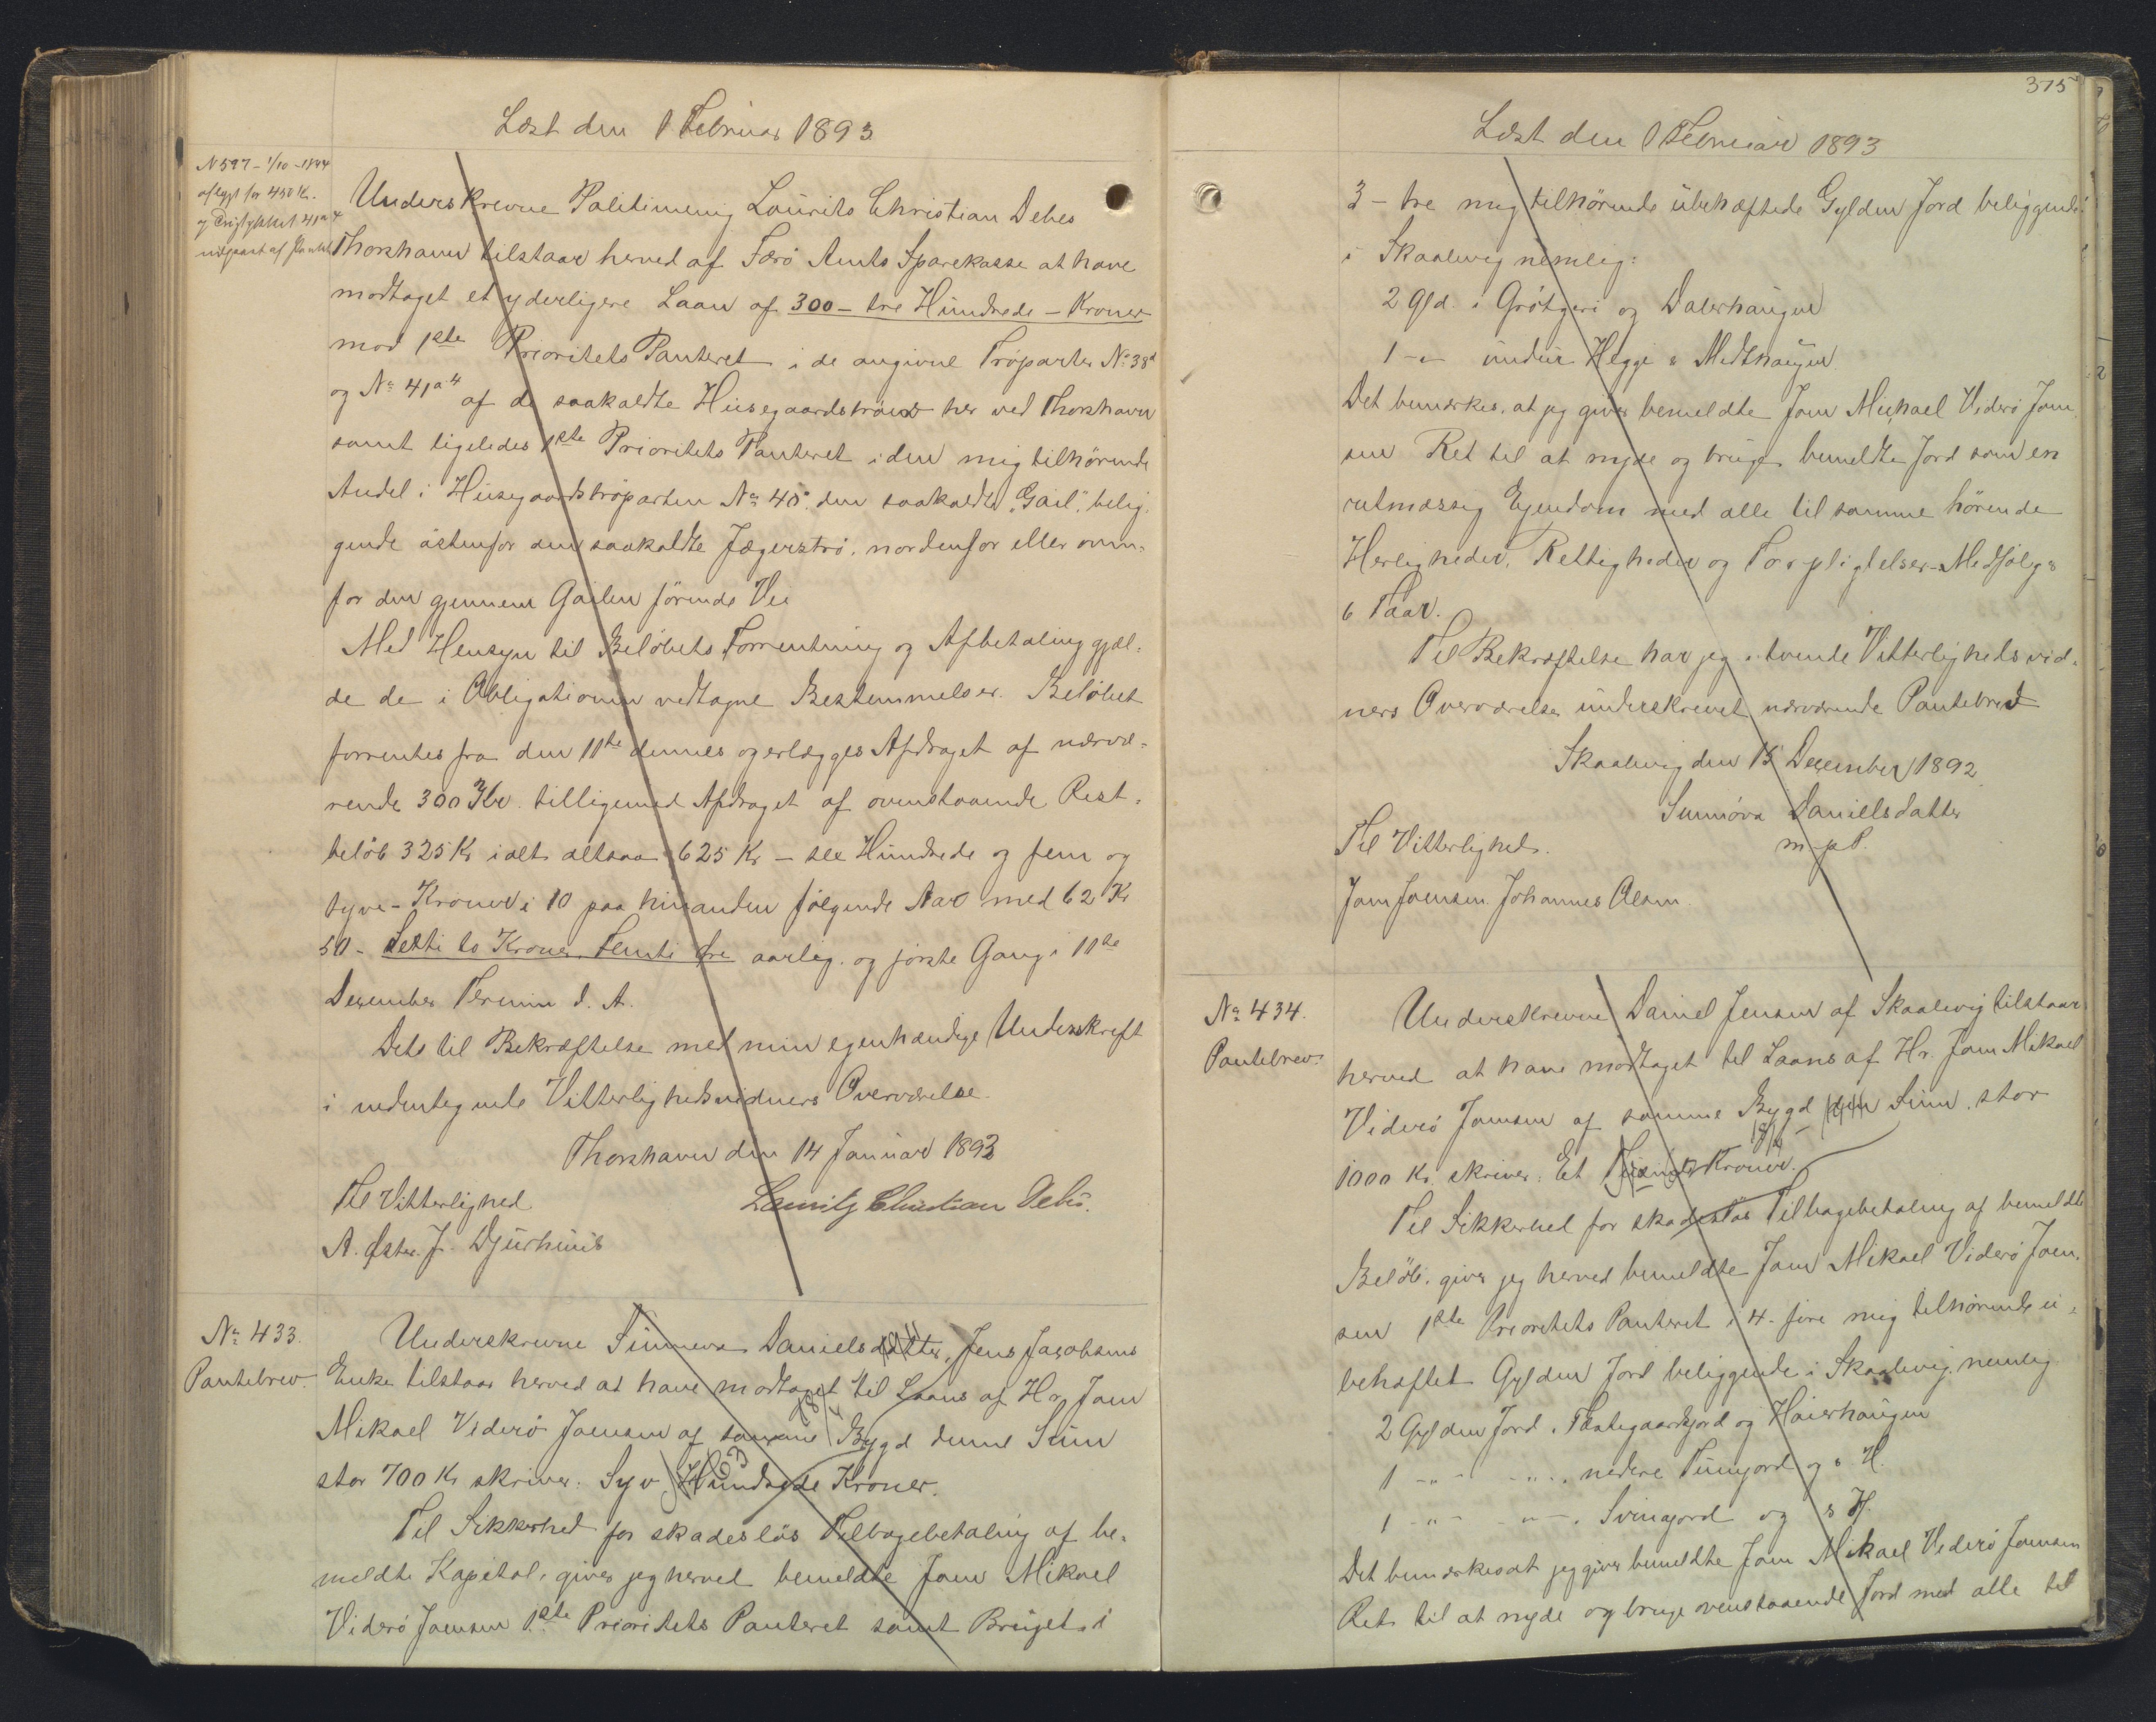 Læst den 1 Februar 1893
N 597 - 1/10 - 1894
aflyst for 450 Kr.
og Trøstykket 41 a 4
udgaaet af Pantet
Underskrevne Politimenig Laurits Christian Debes
Thorshavn tilstaar herved af Færø Amts Sparekasse at have
modtaget et yderligere Laan af 300 - tre Hundrede - Kroner
mod 1ste Prioritets Panteret i de angivne Trøparter No 38d
og No 41 a 4 af de saakaldte Husegaardstrøer her ved Thorshavn
samt ligeledes 1ste Prioritets Panteret i den mig tilhørende
Andel i Husegaardstrøparten No 40. den saakaldte "Gail", belig-
gende østenfor den saakaldte Jægerstrø, nordenfor eller oven-
for den gjennem Gailen førende Vei
Med Hensyn til Beløbets Forrentning og Afbetaling gjæl-
de de i Obligationen vedtagne Bestemmelser. Beløbet
forrentes fra den 11te dennes og erlægges Afdraget af nærvæ-
rende 300 Kr. tilligemed Afdraget af ovenstaaende Rest-
beløb 325 Kr ialt altsaa 625 Kr - sex Hundrede og fem og
tyve - Kroner i 10 paa hinanden følgende Aar med 62 Kr
50 - Sexti to Kroner, Femti Øre aarlig. og første Gang i 11te
December Termin d. A.
Dets til Bekræftelse med min egenhændige Underskrift
i undertegnede Vitterlighedsvidners Overværelse.
Thorshavn den 14 Januar 1893
Til Vitterlighed Lauritz Christian Debes.
A. Øster. J. Djurhuus
No 433.
Pantebrev.
Underskrevne Sunneva Danielsdatter, Jens Jacobsens
Enke tilstaar herved at have modtaget til Laans af Hr. Joen
Mikael Viderø Joensen af samme Bygd denne Sum
stor 700 Kr skriver: Syv Hundrede Kroner.
Til Sikkerhed for skadesløs Tilbagebetaling af be-
meldte Kapital, giver jeg herved bemeldte Joen Mikael
Viderø Joensen 1ste Prioritets Panteret samt Bruget i
375
Læst den 1 Februar 1893
3 - tre mig tilhørende ubehæftede Gylden Jord beliggende
i Skaalevig nemlig:
2 Gld. i Grótgeri og Dalerhaugen
1 -"- undir Hegge & Midthaugen
Det bemærkes, at jeg giver bemeldte Joen Michael Viderø Joen-
sen Ret til at nyde og bruge bemeldte Jord som en
retmæssig Ejendom med alle til samme hørende
Herligheder, Rettigheder og Forpligtelser - Medfølger
6 Faar.
Til Bekræftelse har jeg i tvende Vitterligheds vid-
ners Overværelse underskrevet nærværende Pantebrev
Skaalevig den 15 December 1892
Sunnøva Danielsdatter
Til Vitterlighed. m. p. P.
Joen Joensen. Johannes Olsen.
No 434.
Pantebrev.
Underskrevne Daniel Jensen af Skaalevig tilstaar
herved at have modtaget til Laans af Hr. Joen Mikael
Viderø Joensen af samme Bygd den Sum, stor
1000 Kr. skriver: Et Tusinde Kroner.
Til Sikkerhed for skadesløs Tilbagebetaling af bemeldte
Beløb, giver jeg herved bemeldte Joen Mikael Viderø Joen-
sen 1ste Prioritets Panteret i 4 - fire mig tilhørende u-
behæftet Gylden Jord beliggende i Skaalevig, nemlig
2 Gylden Jord i Tastegaardsjord og Haierhaugen
1 -"- -"- . nedere Tunjord og s H.
1 -"- -"- . Svinajord og s H.
Det bemærkes at jeg giver bemeldte Joen Mikael Viderø Joensen
Ret til at nyde og bruge ovenstaaende Jord med alle til